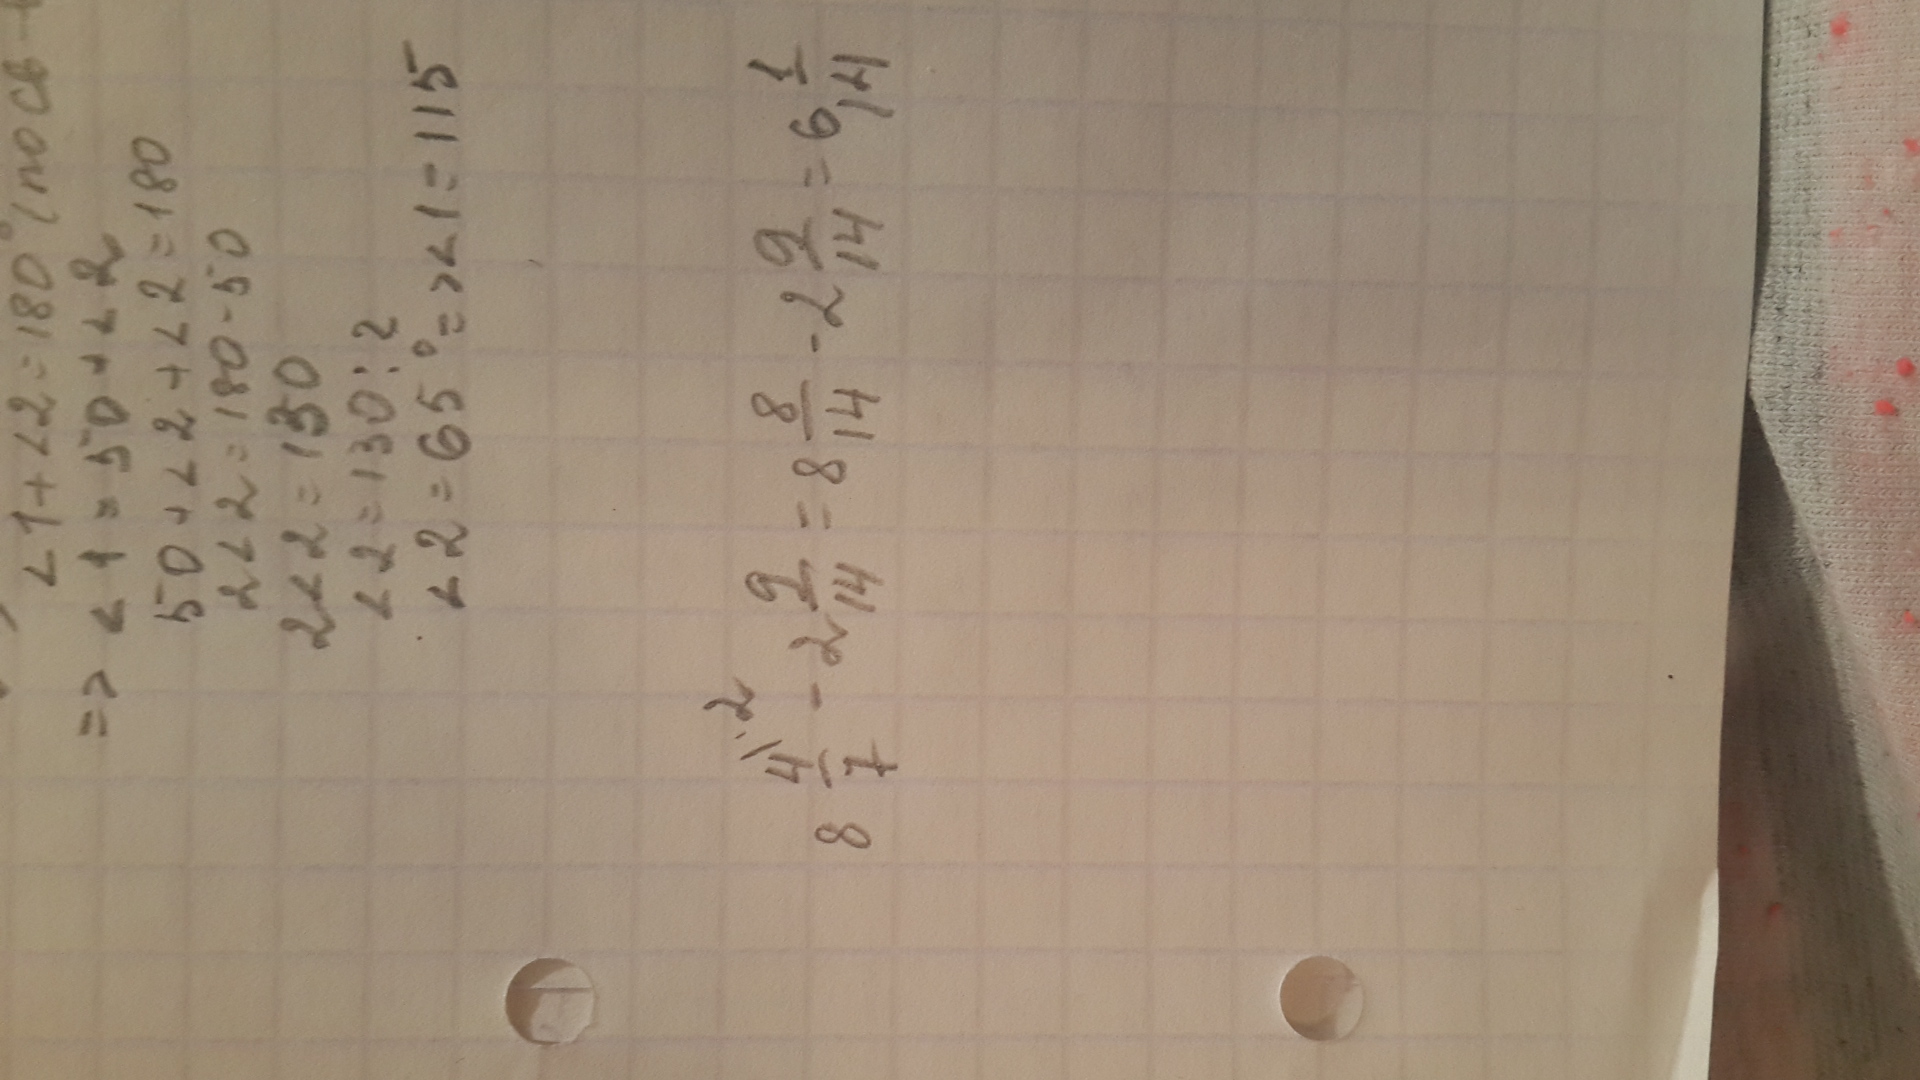 <1+<2=180° (по св-
=> <1=50+<2
50+<2+<2=180
2<2=180-50
2<2=130
<2=130:2
<2=65° => <1=115
8 4/7 \·2 - 2 9/14 = 8 8/14 - 2 9/14 = 6 1/14